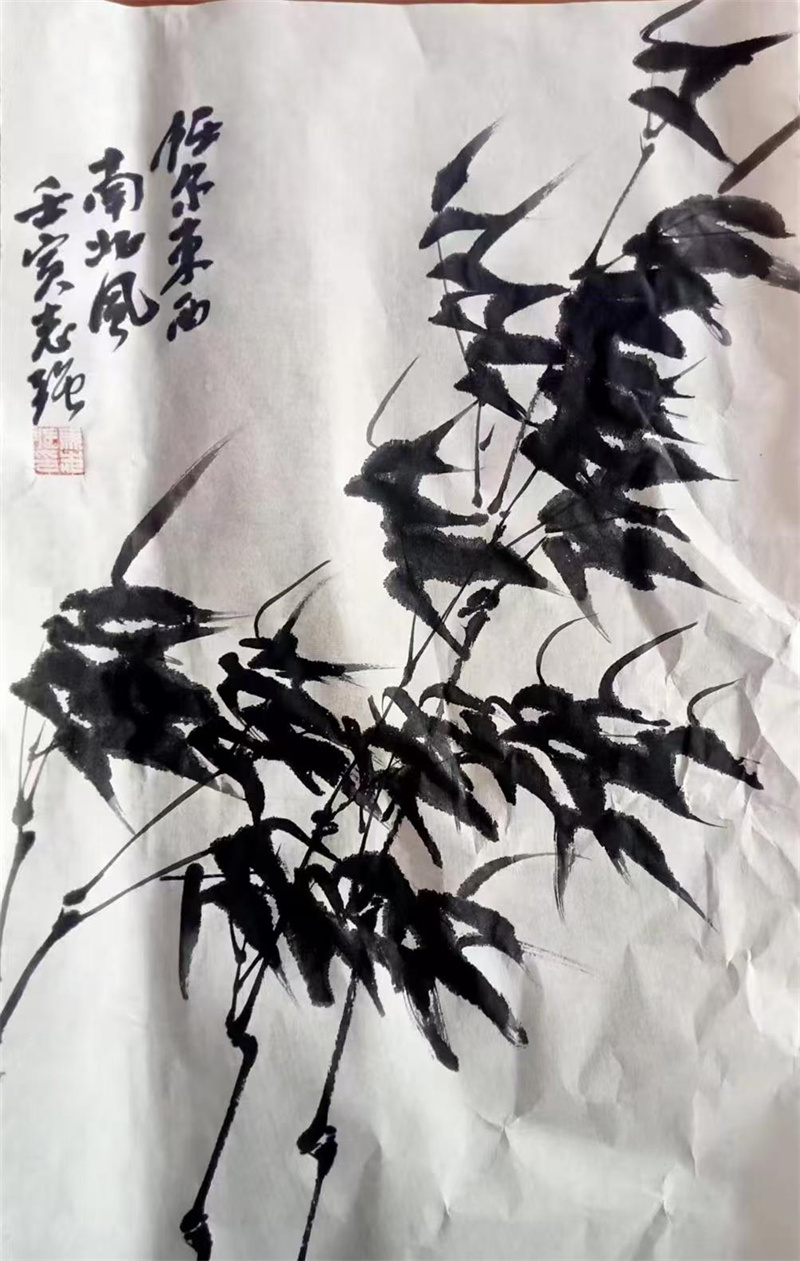 任尔东西
南北风
壬寅志强